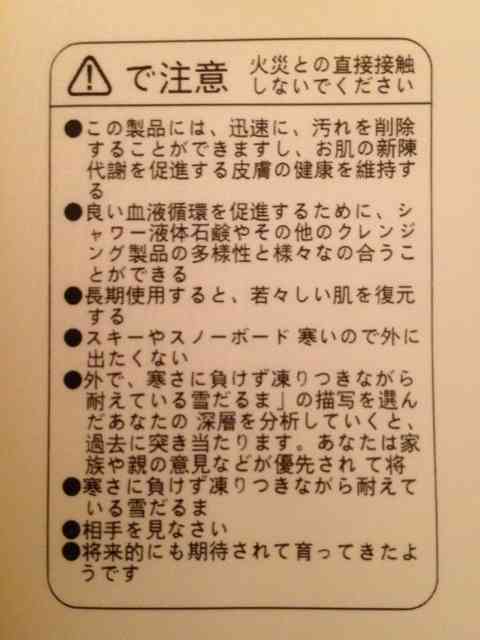 で注意
火災との直接接触
しないでください
●この製品には、迅速に、汚れを削除
することができますし、お肌の新陳
代謝を促進する皮膚の健康を維持す
る
●良い血液循環を促進するために、シ
ャワー液体石鹸やその他のクレンジ
ング製品の多様性と様々なの合うこ
とができる
●長期使用すると、若々しい肌を復元
する
●スキーやスノーボード 寒いので外に
出たくない
●外で、寒さに負けず凍りつきながら
耐えている雪だるま」の描写を選ん
だあなたの 深層を分析していくと、
過去に突き当たります。あなたは家
族や親の意見などが優先され て将
●寒さに負けず凍りつきながら耐えて
いる雪だるま
●相手を見なさい
●将来的にも期待されて育ってきたよ
うです